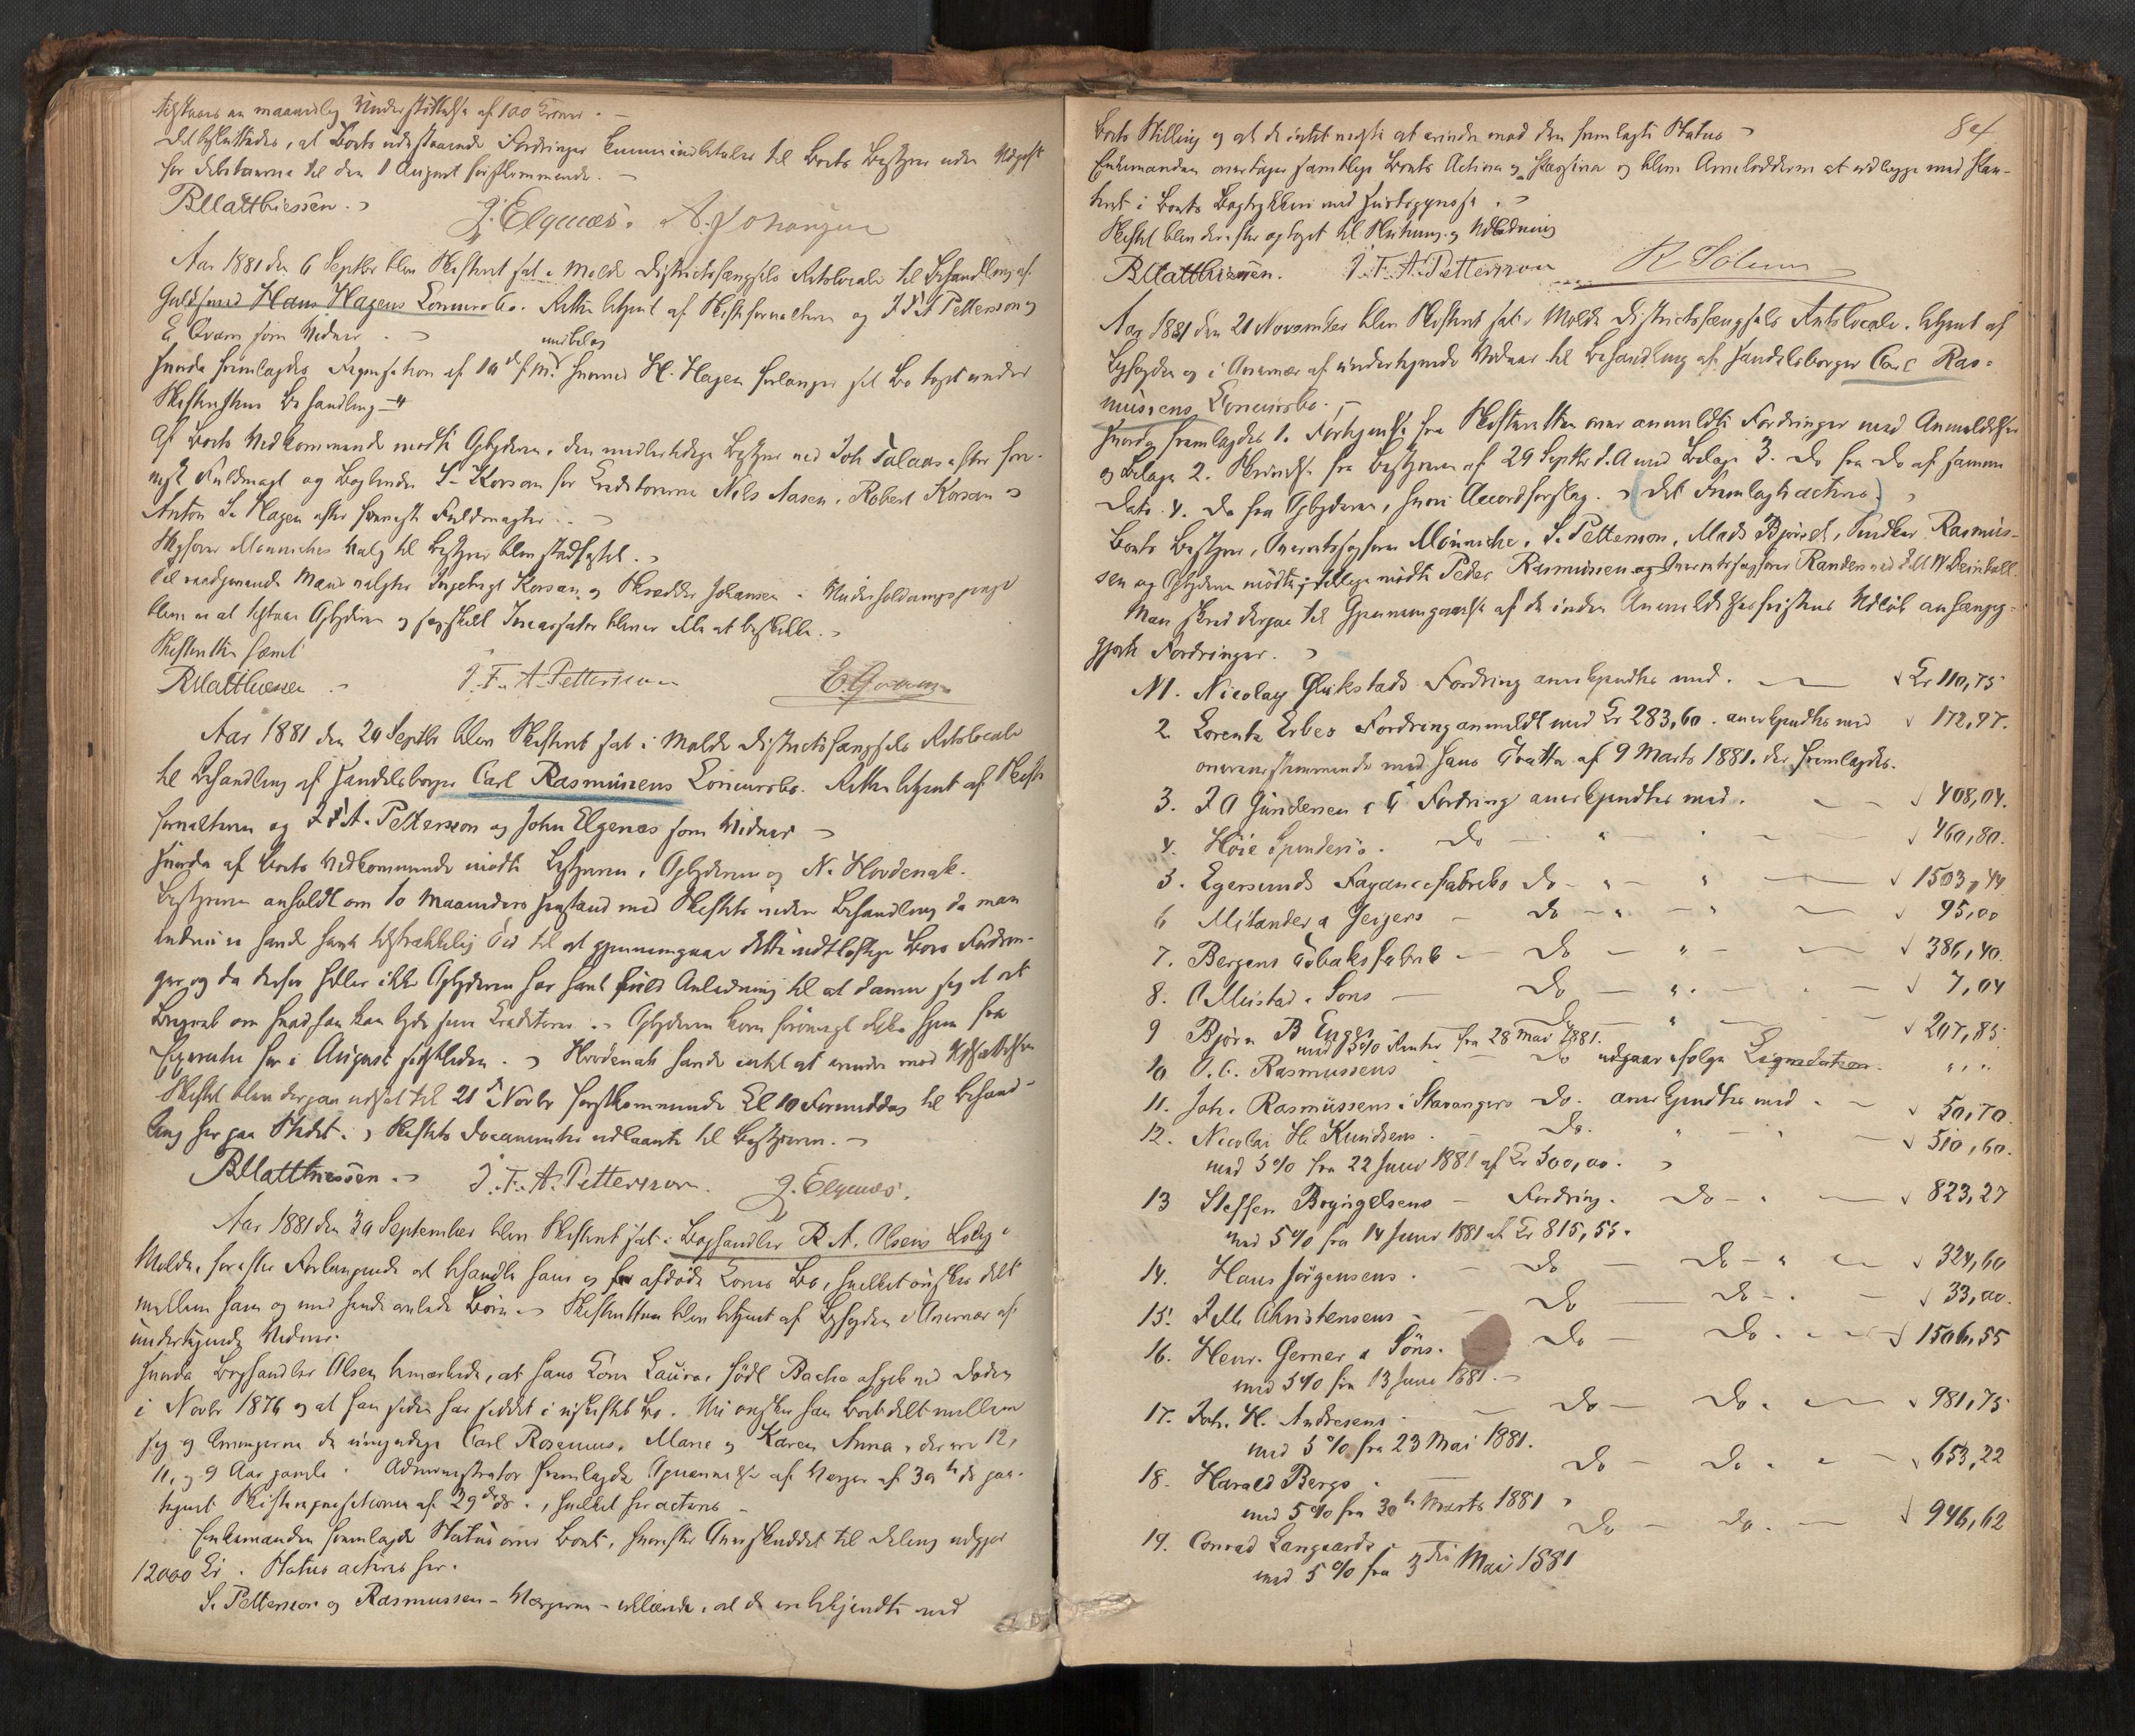 tilstaaes en maanedlig Understøttelse af 100 Kroner. –
Det besluttedes, at Boets udestaaende Fordringer kunne indbetales til Boets Bestyrer uden Udgift
for Debitorerne til den 1 August førstkommende. –
RMatthiessen.
J. Elgenæs. A. Johansen
Aar 1881 den 6 Septbr blev Skifteret sat i Molde Districtsfængsels Retslocale til Behandling af
Guldsmed Hans Hagens Concursbo. Retten betjent af Skifteforvalteren og J F A Petterson og
E. Qvam som Vidner.
med bilag
Hvorda fremlagdes Reqvisition af 10de f. M. hvorved H. Hagen forlanger sit Bo taget under
Skifterettens Behandling
Af Boets Vedkommende mødte Opbyderen, den midlertidige Bestyrer ved Joh Talaas efter for-
nyet Fuldmagt og Boghandler S. Korsan for Creditorerne Nils Aasen, Robert Korsan
Anton L. Hagen efter fremlagte Fuldmagter.
Sagfører Mönniches Valg til Bestyrer blev stadfæstet.
Til raadgivende Mænd valgtes Ingebrigt Korsan og Skrædder Johansen. Underholdningspenge
blev ei at tilstaae Opbyderen og særskilt Incassator bliver ikke at beskikke.
Skifteretten hævet
RMatthiessen
J. F. A. Petterson
E. Qvam
Aar 1881 den 24 Septbr blev Skifteret sat i Molde Districtsfængsels Retslocale
til Behandling af Handelsborger Carl Rasmussens Concursbo. Retten betjent af Skifte
forvalteren og J F A. Petterson og John Elgenæs som Vidner –
Hvorda af Boets Vedkommende mødte Bestyreren, Opbyderen og N. Hovdenak.
Bestyreren anholdt om to Maaneders Henstand med Skiftets videre Behandling da man
endnu ei havde havt tilstrækkelig Tid til at gjennemgaae dette vidtløftige Boes Fordrin-
ger og da derfor heller ikke Opbyderen har havt fuld Anledning til at danne sig et ret
Begreb om hvad han kan byde sine Creditorer. Opbyderen kom forøvrigt ikke hjem fra
før i August sidstleden. Hovdenak havde intet at erindre mod Udsættelsen
Skiftet blev derpaa udsat til 21de Novbr førstkommende Kl 10 Formiddag til Behand-
ling her paa Stedet. Skiftets Documenter udlaantes til Bestyreren. –
RMatthiessen. J. F. A. Petterson. J. Elgenæs.
Aar 1881 den 30 September blev Skifteret sat i Boghandler R. A. Olsens Bolig i
Molde, for efter Forlangende at behandle hans og afdøde Kones Bo, hvilket ønskes delt
mellem ham og med hende avlede Børn. Skifteretten blev betjent af Byfogden i Overvær af
undertegnede Vidner.
Hvorda Boghandler Olsen bemærkede, at hans Kone Laura, født Bache afgik ved Døden
i Novbr 1876 og at han siden har siddet i uskiftet Bo. Nu ønsker han Boet delt mellem
sig og Arvingerne de umyndige Carl Rasmus, Marie og Karen Anna, der ere 12,
11, og 9 Aar gamle. Administrator fremlagde Opnævnelse af Værger af 30te ds paa-
tegnet Skifterequisitionen af 29de ds., hvilket her acteres –
Enkemanden fremlagde Status over Boet, hvorefter Overskuddet til Deling udgjør
12000 Kr. Status acteres her.
S. Petterson og Rasmussen – Værgerne – erklærede, at de ere bekjendte med
84
Boets Stilling og at de intet havde at erindre mod den fremlagte Status
Enkemanden overtager samtlige Boets Activa og Passiva og blive Arvelodderne at udlægge med Pan-
teret i Boets med Første
Skiftet blev derefter optaget til Slutning og Udlodning
RMatthiessen. J. F. A. Petterson R. Solem
Aar 1881 den 21 November blev Skifteret sat i Molde Districtsfængsels Retslocale, betjent af
Byfogden og i Overvær af undertegnede Vidner til Behandling af Handelsborger Carl Ras-
mussens Concursbo. –
Hvorda fremlagdes 1. Fortegnelse fra Skifteretten over anmeldte Fordringer med Anmeldelser
og Bilage 2. Skrivelse fra Bestyreren af 29 Septbr d. A med Bilage 3. Do fra Do af samme
Dato. 4. Do fra Opbyderen, hvori Accordforslag. (Det Fremlagte acteres)
Boets Bestyrer, Overretssagfører Mönniche, S. Petterson, Mads Bjørset, Rasmus-
sen og Opbyderen mødte; ydermere mødte Peder Rasmussen og Overretssagfører Randers ved E W Deinboll.
Man skred derpaa til Gjennemgaaelse af de inden Anmeldelsesfristens Udløb anhængig-
gjorte Fordringer.
N1. Nicolay Glükstads Fordring anerkjendtes med. Kr 110,75
2. Lorentz Erbes Fordring anmeldt med Kr 283,60. anerkjendtes med 172,97.
overensstemmende med hans Tratte af 9 Marts 1881. der fremlagdes.
3. J A Gundersen & C Fordring anerkjendtes med. 408,04.
4. Høie Spinderis. Do " 460,80.
5. Egersunds Fayancefabriks Do – " – " 1503,44
6 Melander & Jeigers – Do – " – " 95,00
7. Bergens Tobaksfabrik – Do – " 386,40.
8. O Mustad & Sons – Do – " 7,04
9 Bjørn B Enges Do – " 207,85
med 5% Renter fra 28 Mai 1881.
10 O. C. Rasmussens Do udgaar ifølge Liqvidation. " "
11. Joh. Rasmussens i Stavangers Do. anerkjendtes med. – 50,70.
12. Nicolai H. Knudsens. – Do. " – " 510,60.
med 5% fra 22 Juni 1881 af Kr 500,00.
13 Steffen Brynjelsens – Fordring. Do – " 823,27
med 5% fra 14 Juni 1881 af Kr 815,55.
14. Hans Jörgensens. – Do – Do – " 324,60
15. J M Christensens – Do – Do – 33,00.
16. Henr. Gerner & Söns. Do – Do. 1506,55
med 5% fra 13 Juni 1881. –
17. Joh. H. Andresens – Do – Do. 981,75
med 5% fra 23 Mai 1881.
18. Harald Bergs. – Do – Do. 653,22
med 5% fra 30te Marts 1881
19. Conrad Langaards – Do – Do. 946,62
med 5% fra 3die Mai 1881